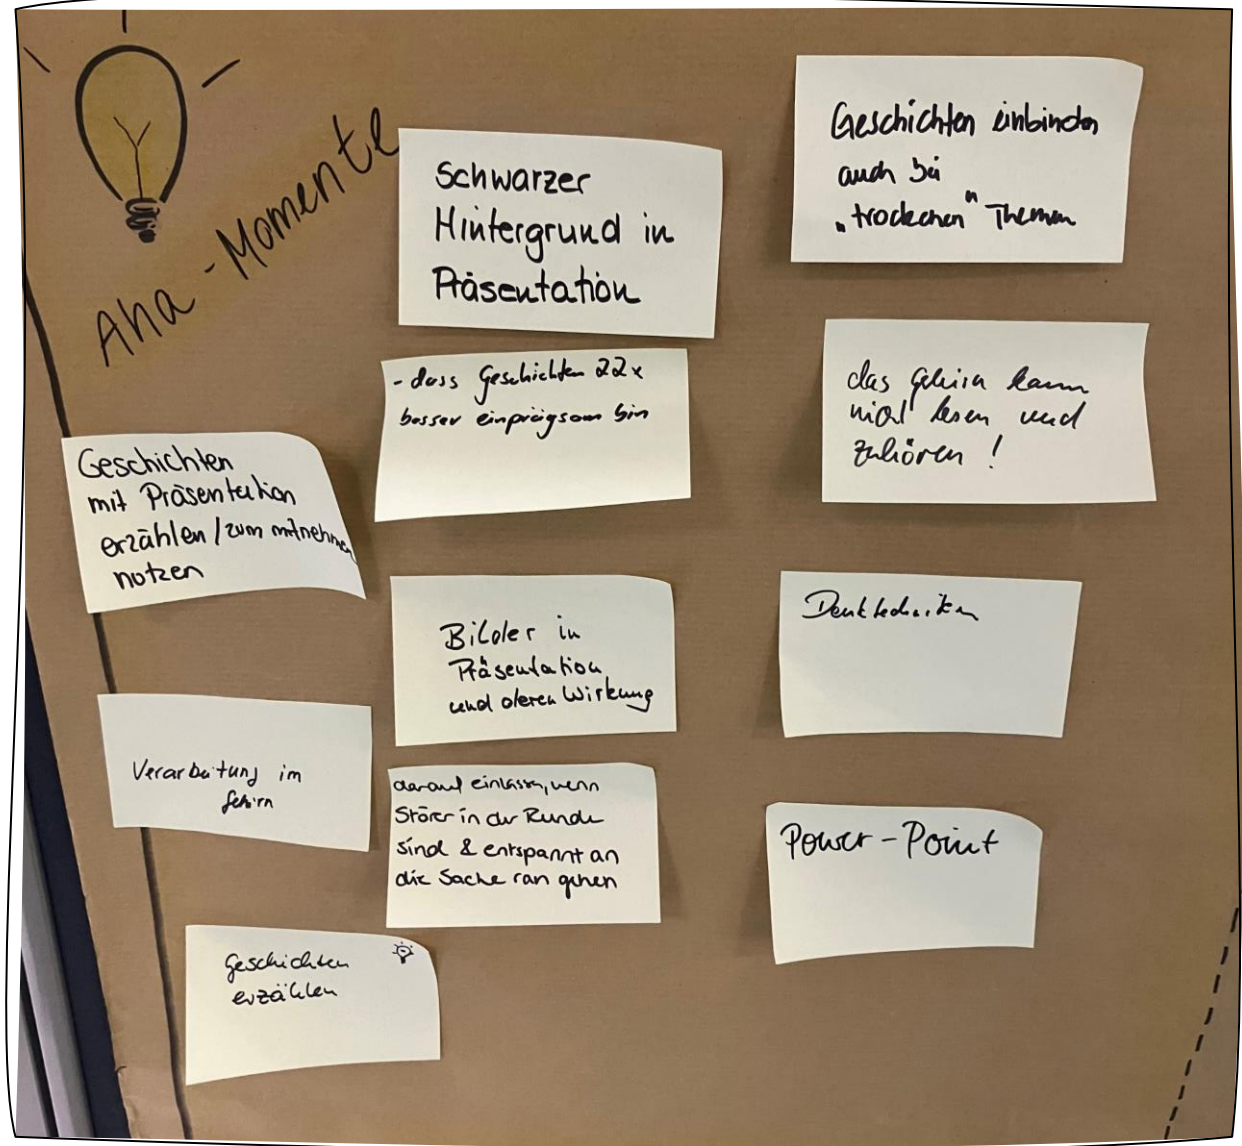 Aha-Momente
Schwarzer
Hintergrund in
Präsentation
Geschichten einbinden
auch bei
„trockenen" Themen
- dass Geschichten 22x
besser einprägsam bin
das Gehirn kann
nicht lesen und
zuhören !
Geschichten
mit Präsentation
erzählen / zum mitnehmen
notzen
Bilder in
Präsentation
und deren Wirkung
Denktechniken
Verarbeitung im
Gehirn
darauf einlassen, wenn
Störer in der Runde
sind & entspannt an
die Sache ran gehen
Power-Point
Geschichten
erzählen